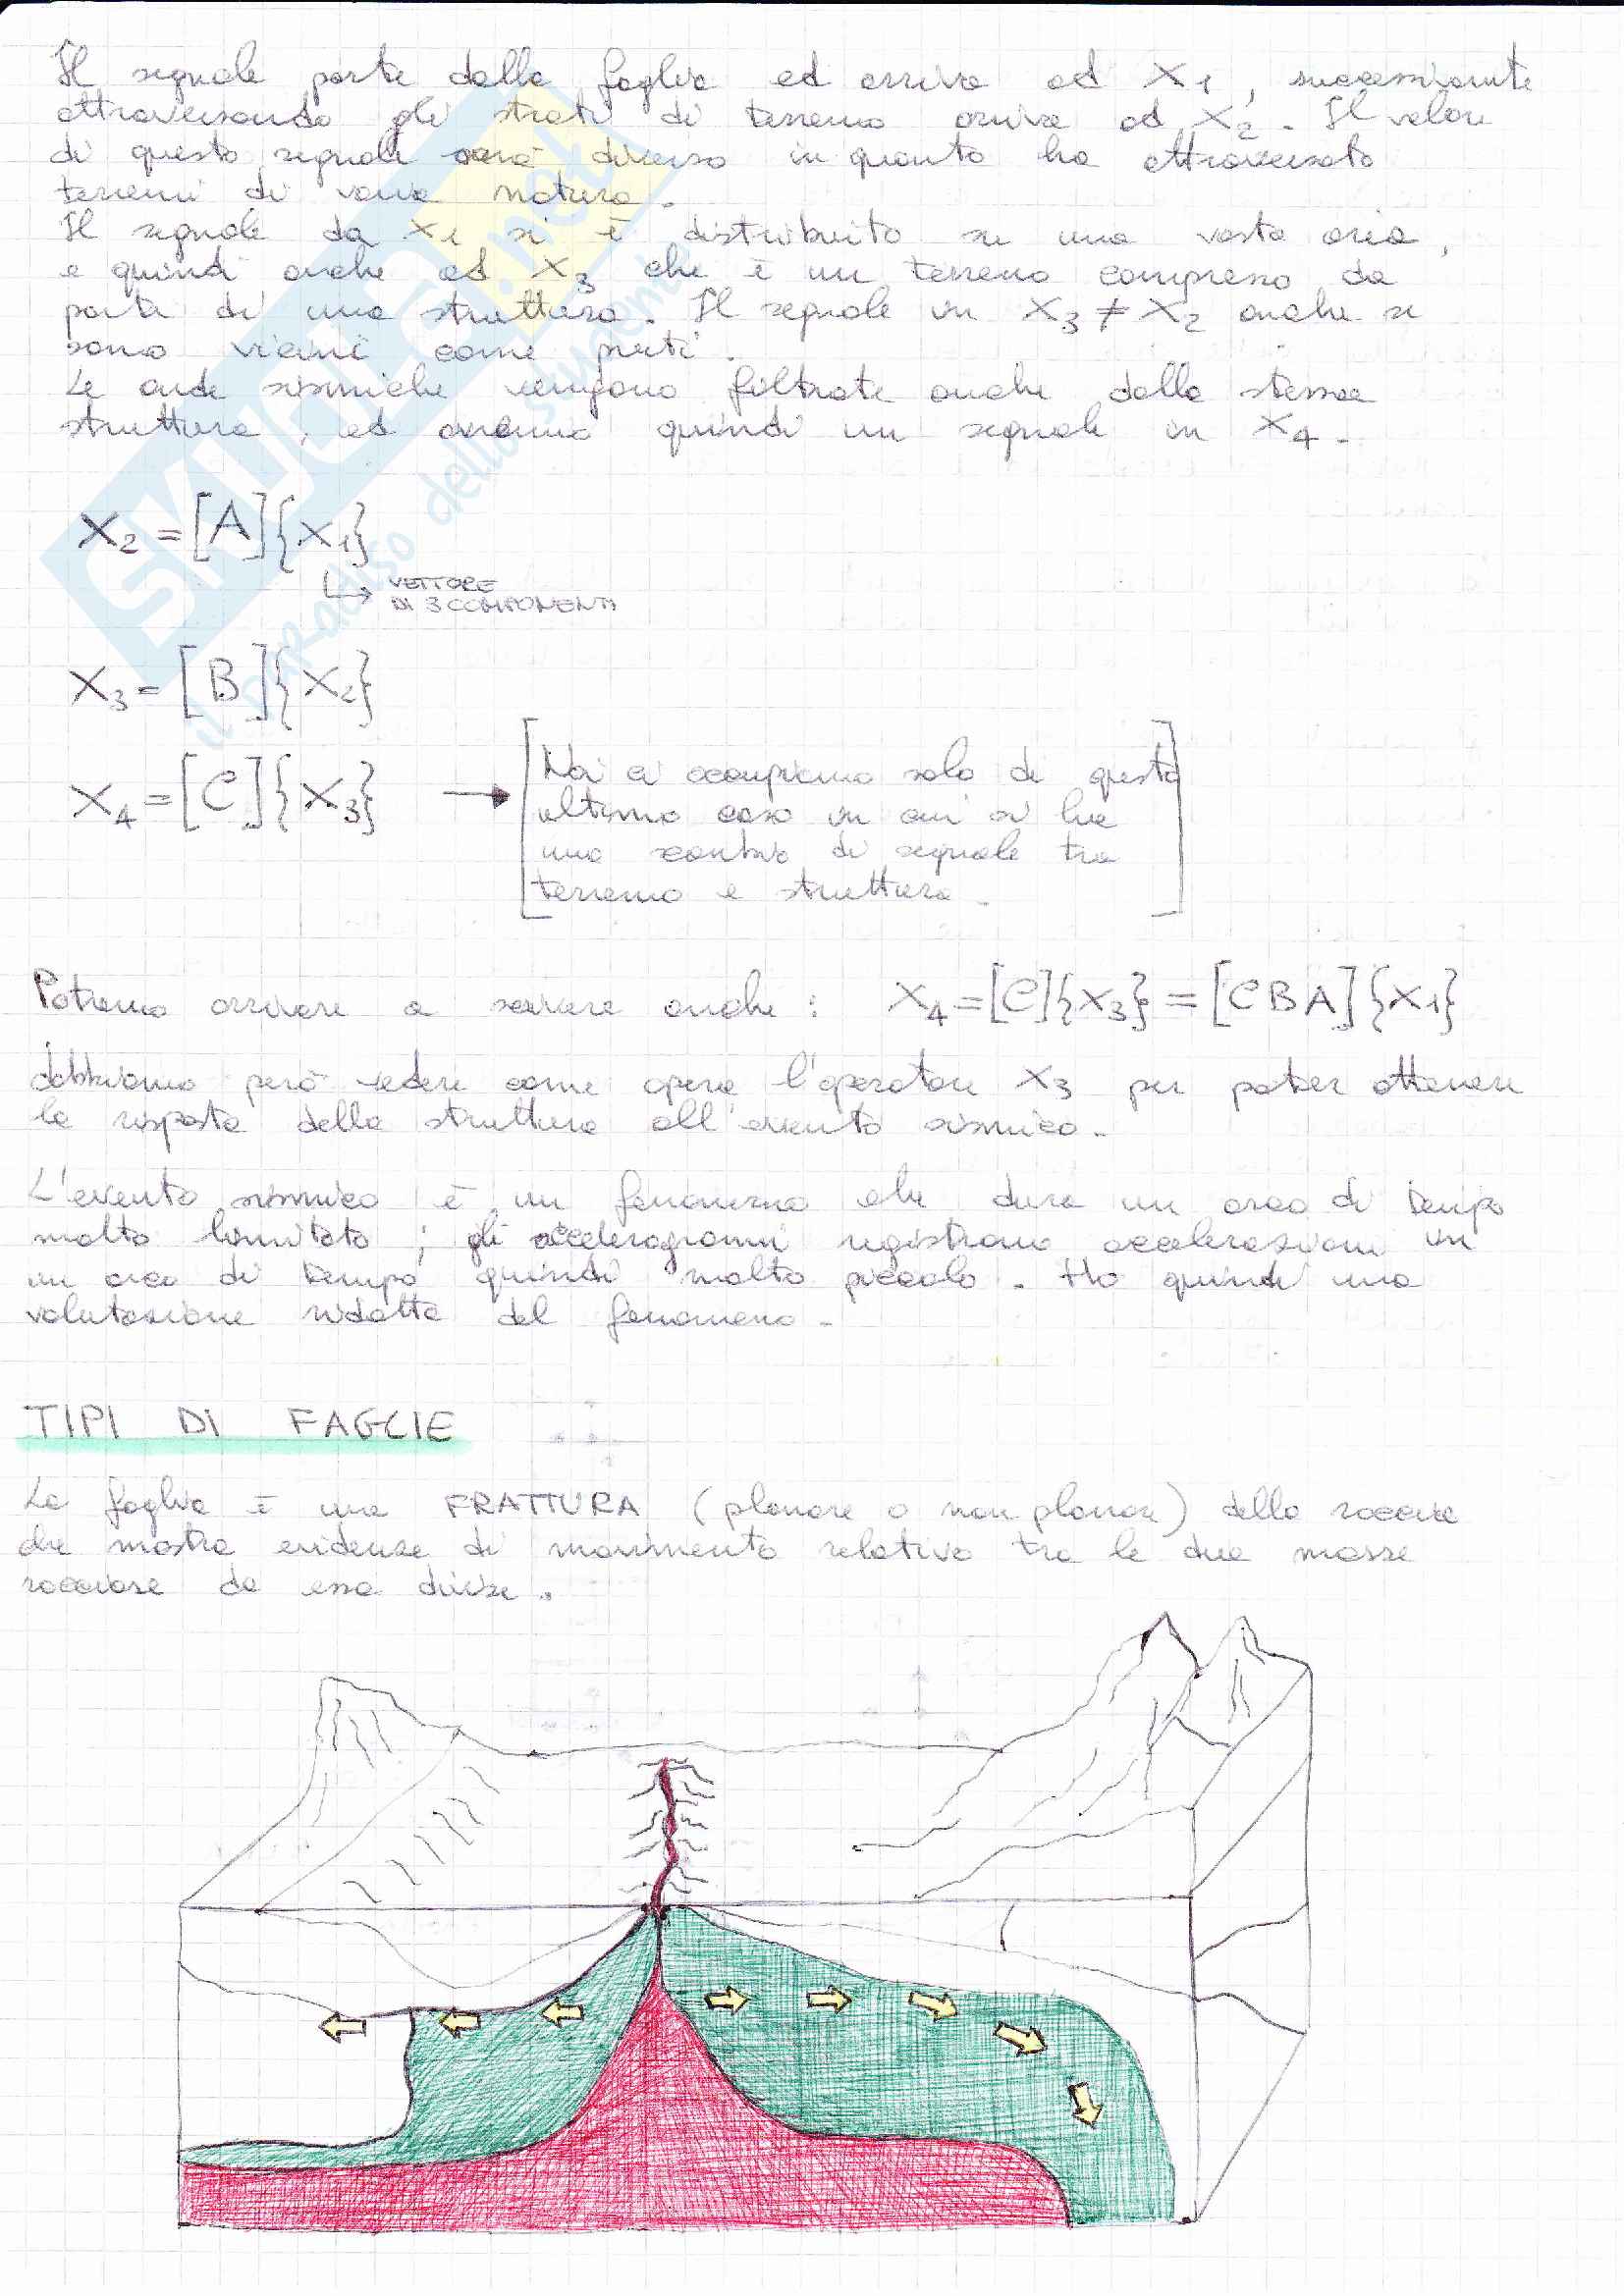 Il segnale parte dalla faglia ed arriva ad X1, successivamente
attraversando gli strati di terreno arriva ad X2. Il valore
di questo segnale sarà diverso in quanto ha attraversato
terreni di varia natura.
Il segnale da X1 si è distribuito su una vasta area,
e quindi anche ad X3 che è un terreno compreso da
parte di una struttura. Il segnale in X3 ≠ X2 anche se
sono vicini come punti.
Le onde sismiche vengono filtrate anche dalla stessa
struttura, ed avremo quindi un segnale in X4.
X2 = [A]{X1}
VETTORE
DI 3 COMPONENTI
X3 = [B]{X2}
X4 = [C]{X3} → Noi ci occupiamo solo di questo
ultimo caso in cui si ha
uno scambio di segnale tra
terreno e struttura.
Potremo arrivare a scrivere anche: X4 = [C]{X3} = [CBA]{X1}
dobbiamo però vedere come opera l'operatore X3 per poter ottenere
la risposta della struttura all'evento sismico.
L'evento sismico è un fenomeno che dura un arco di tempo
molto limitato; gli accelerogrammi registrano accelerazioni in
un arco di tempo quindi molto piccolo. Ho quindi una
valutazione ridotta del fenomeno.
TIPI DI FAGLIE
La faglia è una FRATTURA (planare o non planare) della roccia
che mostra evidenze di movimento relativo tra le due masse
rocciose da essa divise.
SKUOLA.net
il paradiso dello studente